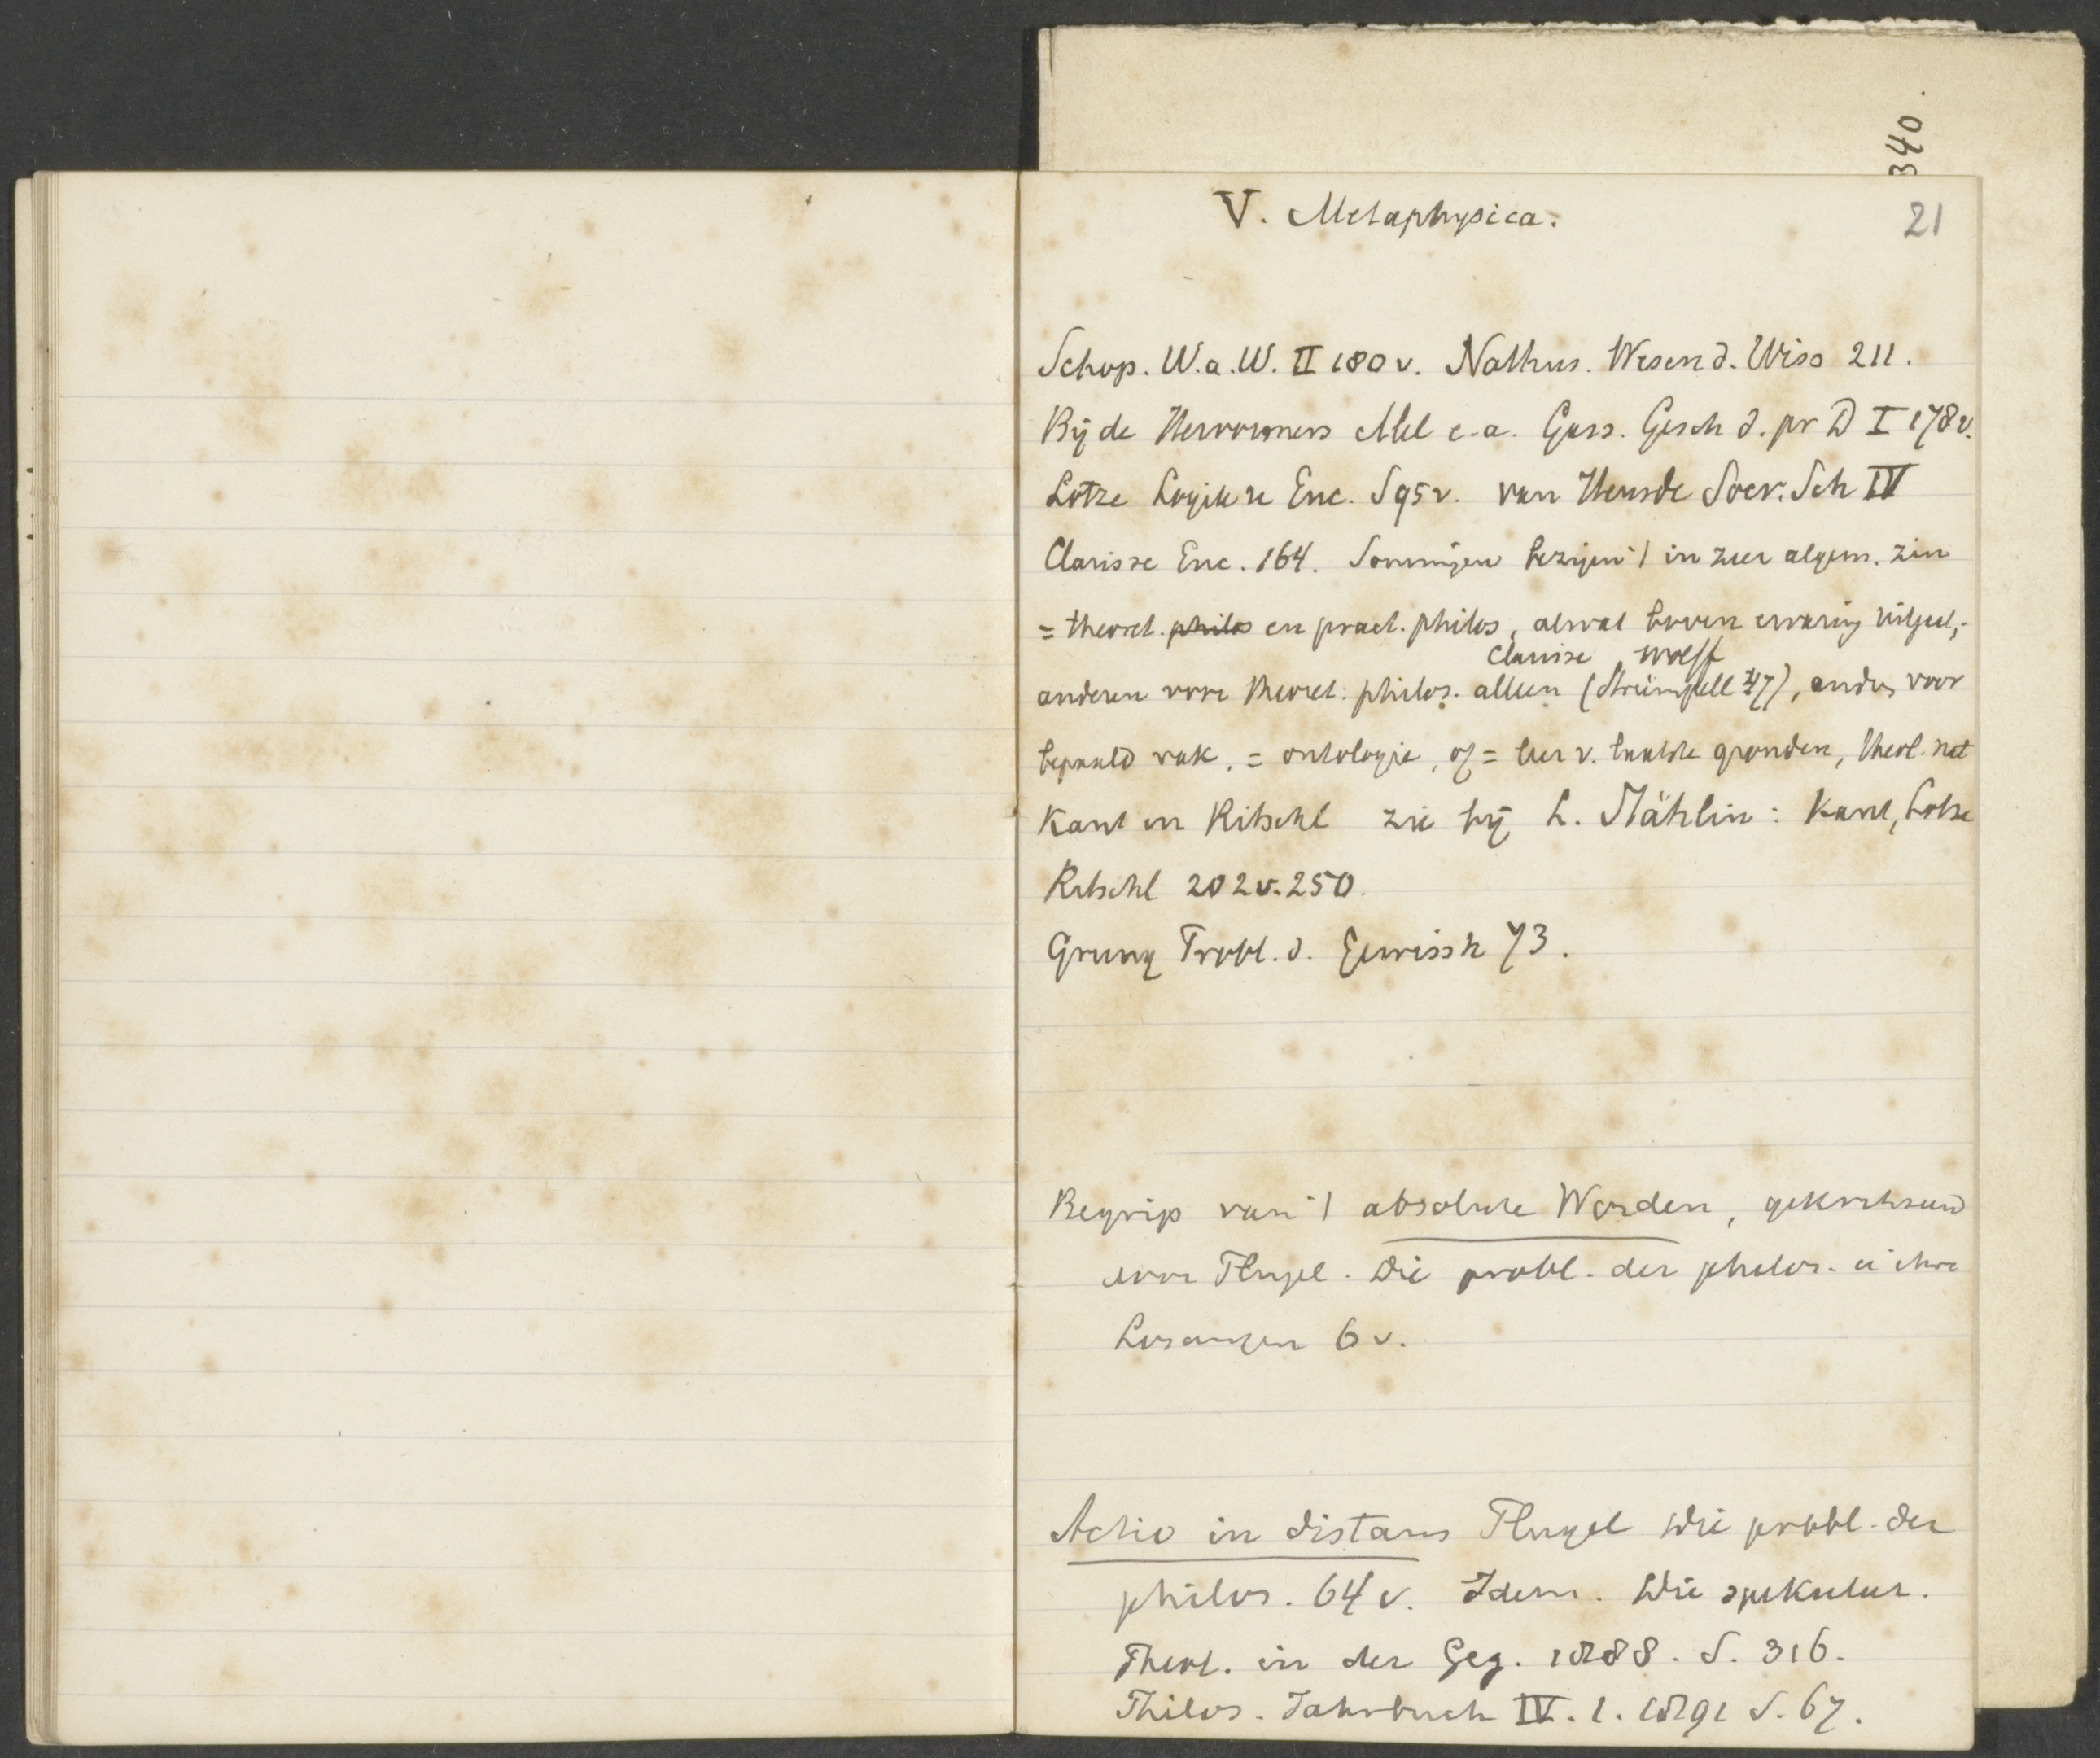 340.
V. Metaphysica.
21
Schop. W. a. W. II 180 v. Nathus. Wesen d. Wiss 211.
Bij de Hervormers Mel e.a. Gass. Gesch d. pr D I 178 v.
Lotze Logik u Enc. S 95 v. van Heusde Socr. Sch IV
Clarisse Enc. 164. Sommigen bezigen 't in zeer algem. zin
= theoret. philos en pract. philos, alwat boven ervaring uitgaat,
Clarisse Wolff
anderen voor theoret. philos. alleen (Strümpell 47), anders voor
bepaald vak, = ontologie, of = leer v. laatste gronden, theol. nat
Kant en Ritschl zie bij L. Stählin: Kant, Lotze
Ritschl 202 v. 250.
Grung Probl. d. Gewissh 73.
Begrip van 't absolute Worden, gekritiseerd
door Flugel. Die probl. der philos. u ihre
Losungen 6 v.
Actio in distans Flugel Die probl. der
philos. 64 v. Idem. Die spekulat.
Theol. in der Geg. 1888. S. 316.
Philos. Jahrbuch IV. 1. 1891 S. 67.